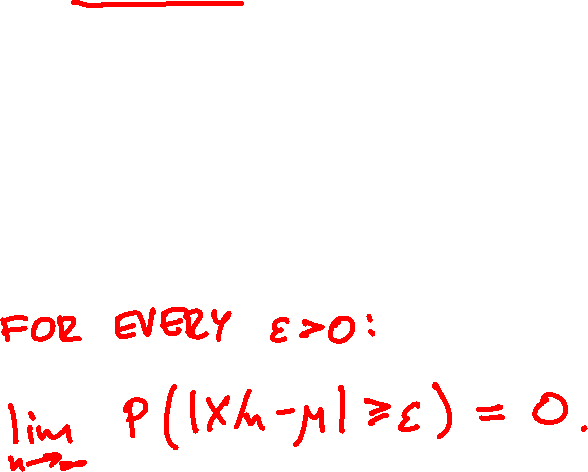 FOR EVERY ε>0:
lim n→∞ P(|X/n-μ|≥ε) = 0.